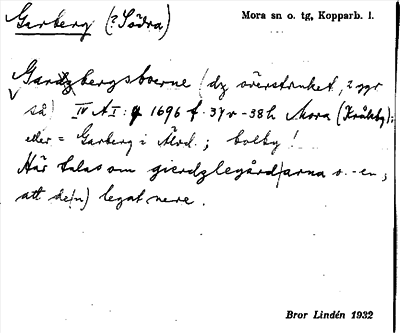 Garberg (? Södra)
Mora sn o. tg, Kopparb. l.
Gardzbergsboerne (dz överstruket, 2 ggr
så) IV A I: 9 1696 f. 37v-38h Mora (Kråkby):
eller = Garberg i Älvd.; bolby!
Här talas om gierdzlegård|arna o. -en;
att de(n) legat nere.
Bror Lindén 1932